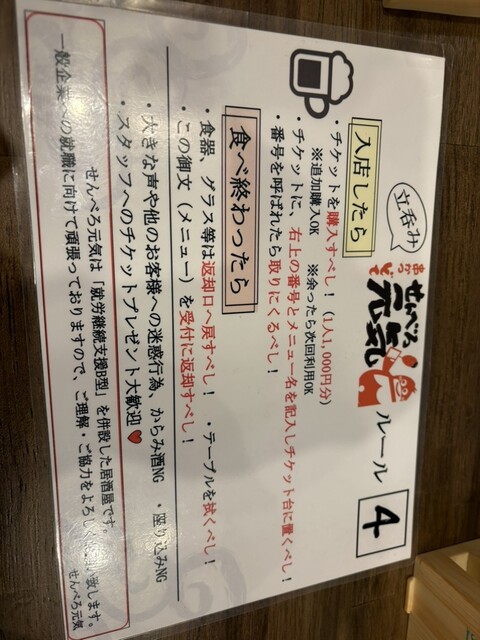 立呑み
串かつと
せんべろ
元気 ルール 4
入店したら
・チケットを購入すべし！（1人1,000円分）
※追加購入OK ※余ったら次回利用OK
・チケットに、右上の番号とメニュー名を記入しチケット台に置くべし！
・番号を呼ばれたら取りにくるべし！
食べ終わったら
・食器、グラス等は返却口へ戻すべし！ ・テーブルを拭くべし！
・この御文（メニュー）を受付に返却すべし！
・大きな声や他のお客様への迷惑行為、からみ酒NG ・座り込みNG
・スタッフへのチケットプレゼント大歓迎❤
せんべろ元気は「就労継続支援B型」を併設した居酒屋です。
一般企業への就職に向けて頑張っておりますので、ご理解・ご協力をよろしく致します。
せんべろ元気